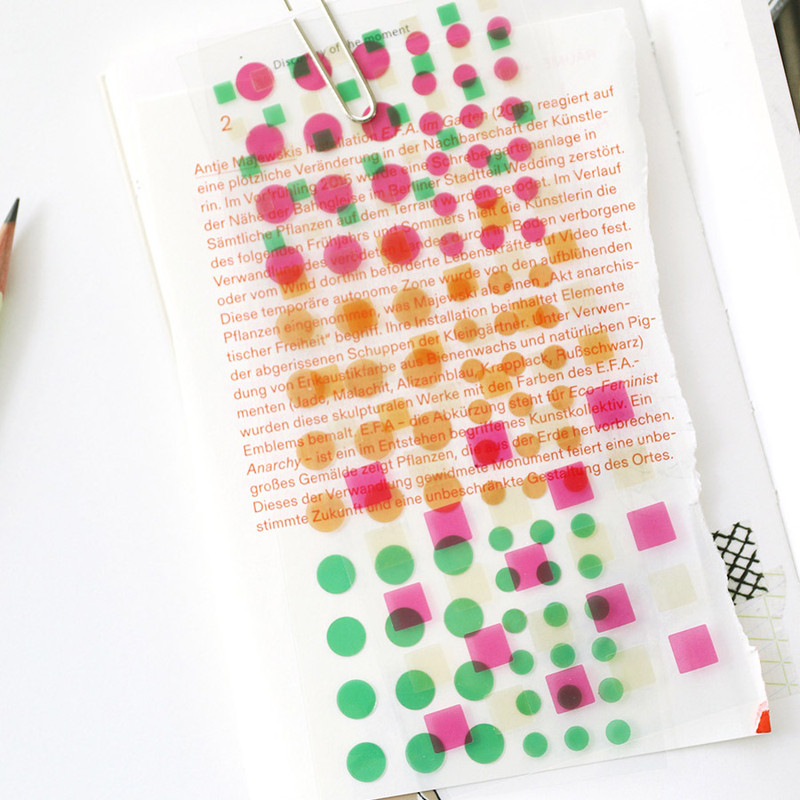 Discovery of the moment
2
Antje Majewskis Installation E.F.A. im Garten (2015) reagiert auf
eine plötzliche Veränderung in der Nachbarschaft der Künstle-
rin. Im Vorfrühling 2015 wurde eine Schrebergartenanlage in
der Nähe der Bahngleise im Berliner Stadtteil Wedding zerstört.
Sämtliche Pflanzen auf dem Terrain wurden gerodet. Im Verlauf
des folgenden Frühjahrs und Sommers hielt die Künstlerin die
Verwandlung des verödeten Landes durch den Boden verborgene
oder vom Wind dorthin beförderte Lebenskräfte auf Video fest.
Diese temporäre autonome Zone wurde von den aufblühenden
Pflanzen eingenommen, was Majewski als einen „Akt anarchis-
tischer Freiheit“ begriff. Ihre Installation beinhaltet Elemente
der abgerissenen Schuppen der Kleingärtner. Unter Verwen-
dung von Enkaustikfarbe aus Bienenwachs und natürlichen Pig-
menten (Jade, Malachit, Alizarinblau, Krapplack, Rußschwarz)
wurden diese skulpturalen Werke mit den Farben des E.F.A.-
Emblems bemalt. E.F.A – die Abkürzung steht für Eco-Feminist
Anarchy – ist ein im Entstehen begriffenes Kunstkollektiv. Ein
großes Gemälde zeigt Pflanzen, die aus der Erde hervorbrechen.
Dieses der Verwandlung gewidmete Monument feiert eine unbe-
stimmte Zukunft und eine unbeschränkte Gestaltung des Ortes.